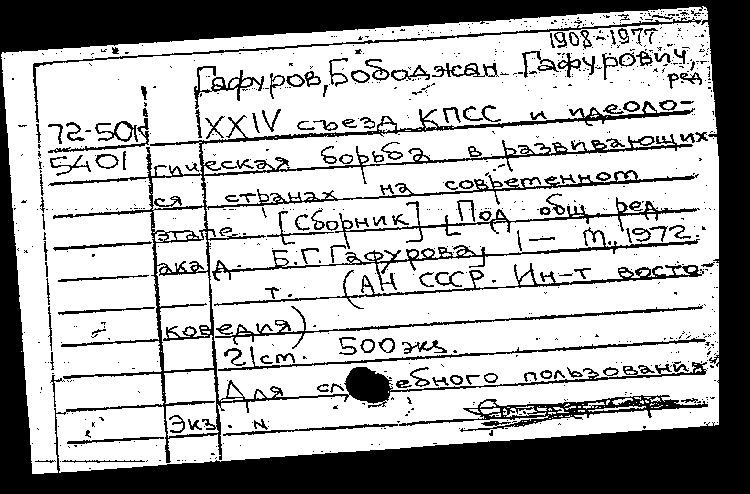 1908-1977
Гафуров, Бободжан Гафурович,
ред
72-50п XXIV съезд КПСС и идеоло-
5401 гическая борьба в развивающих-
ся странах на современном
этапе. [Сборник]. [Под общ. ред.
акад. Б.Г. Гафурова, 1 — М., 1972.
т. (АН СССР. Ин-т восто
коведия).
21 см. 500 экз.
Для сл ебного пользования
Экз. N